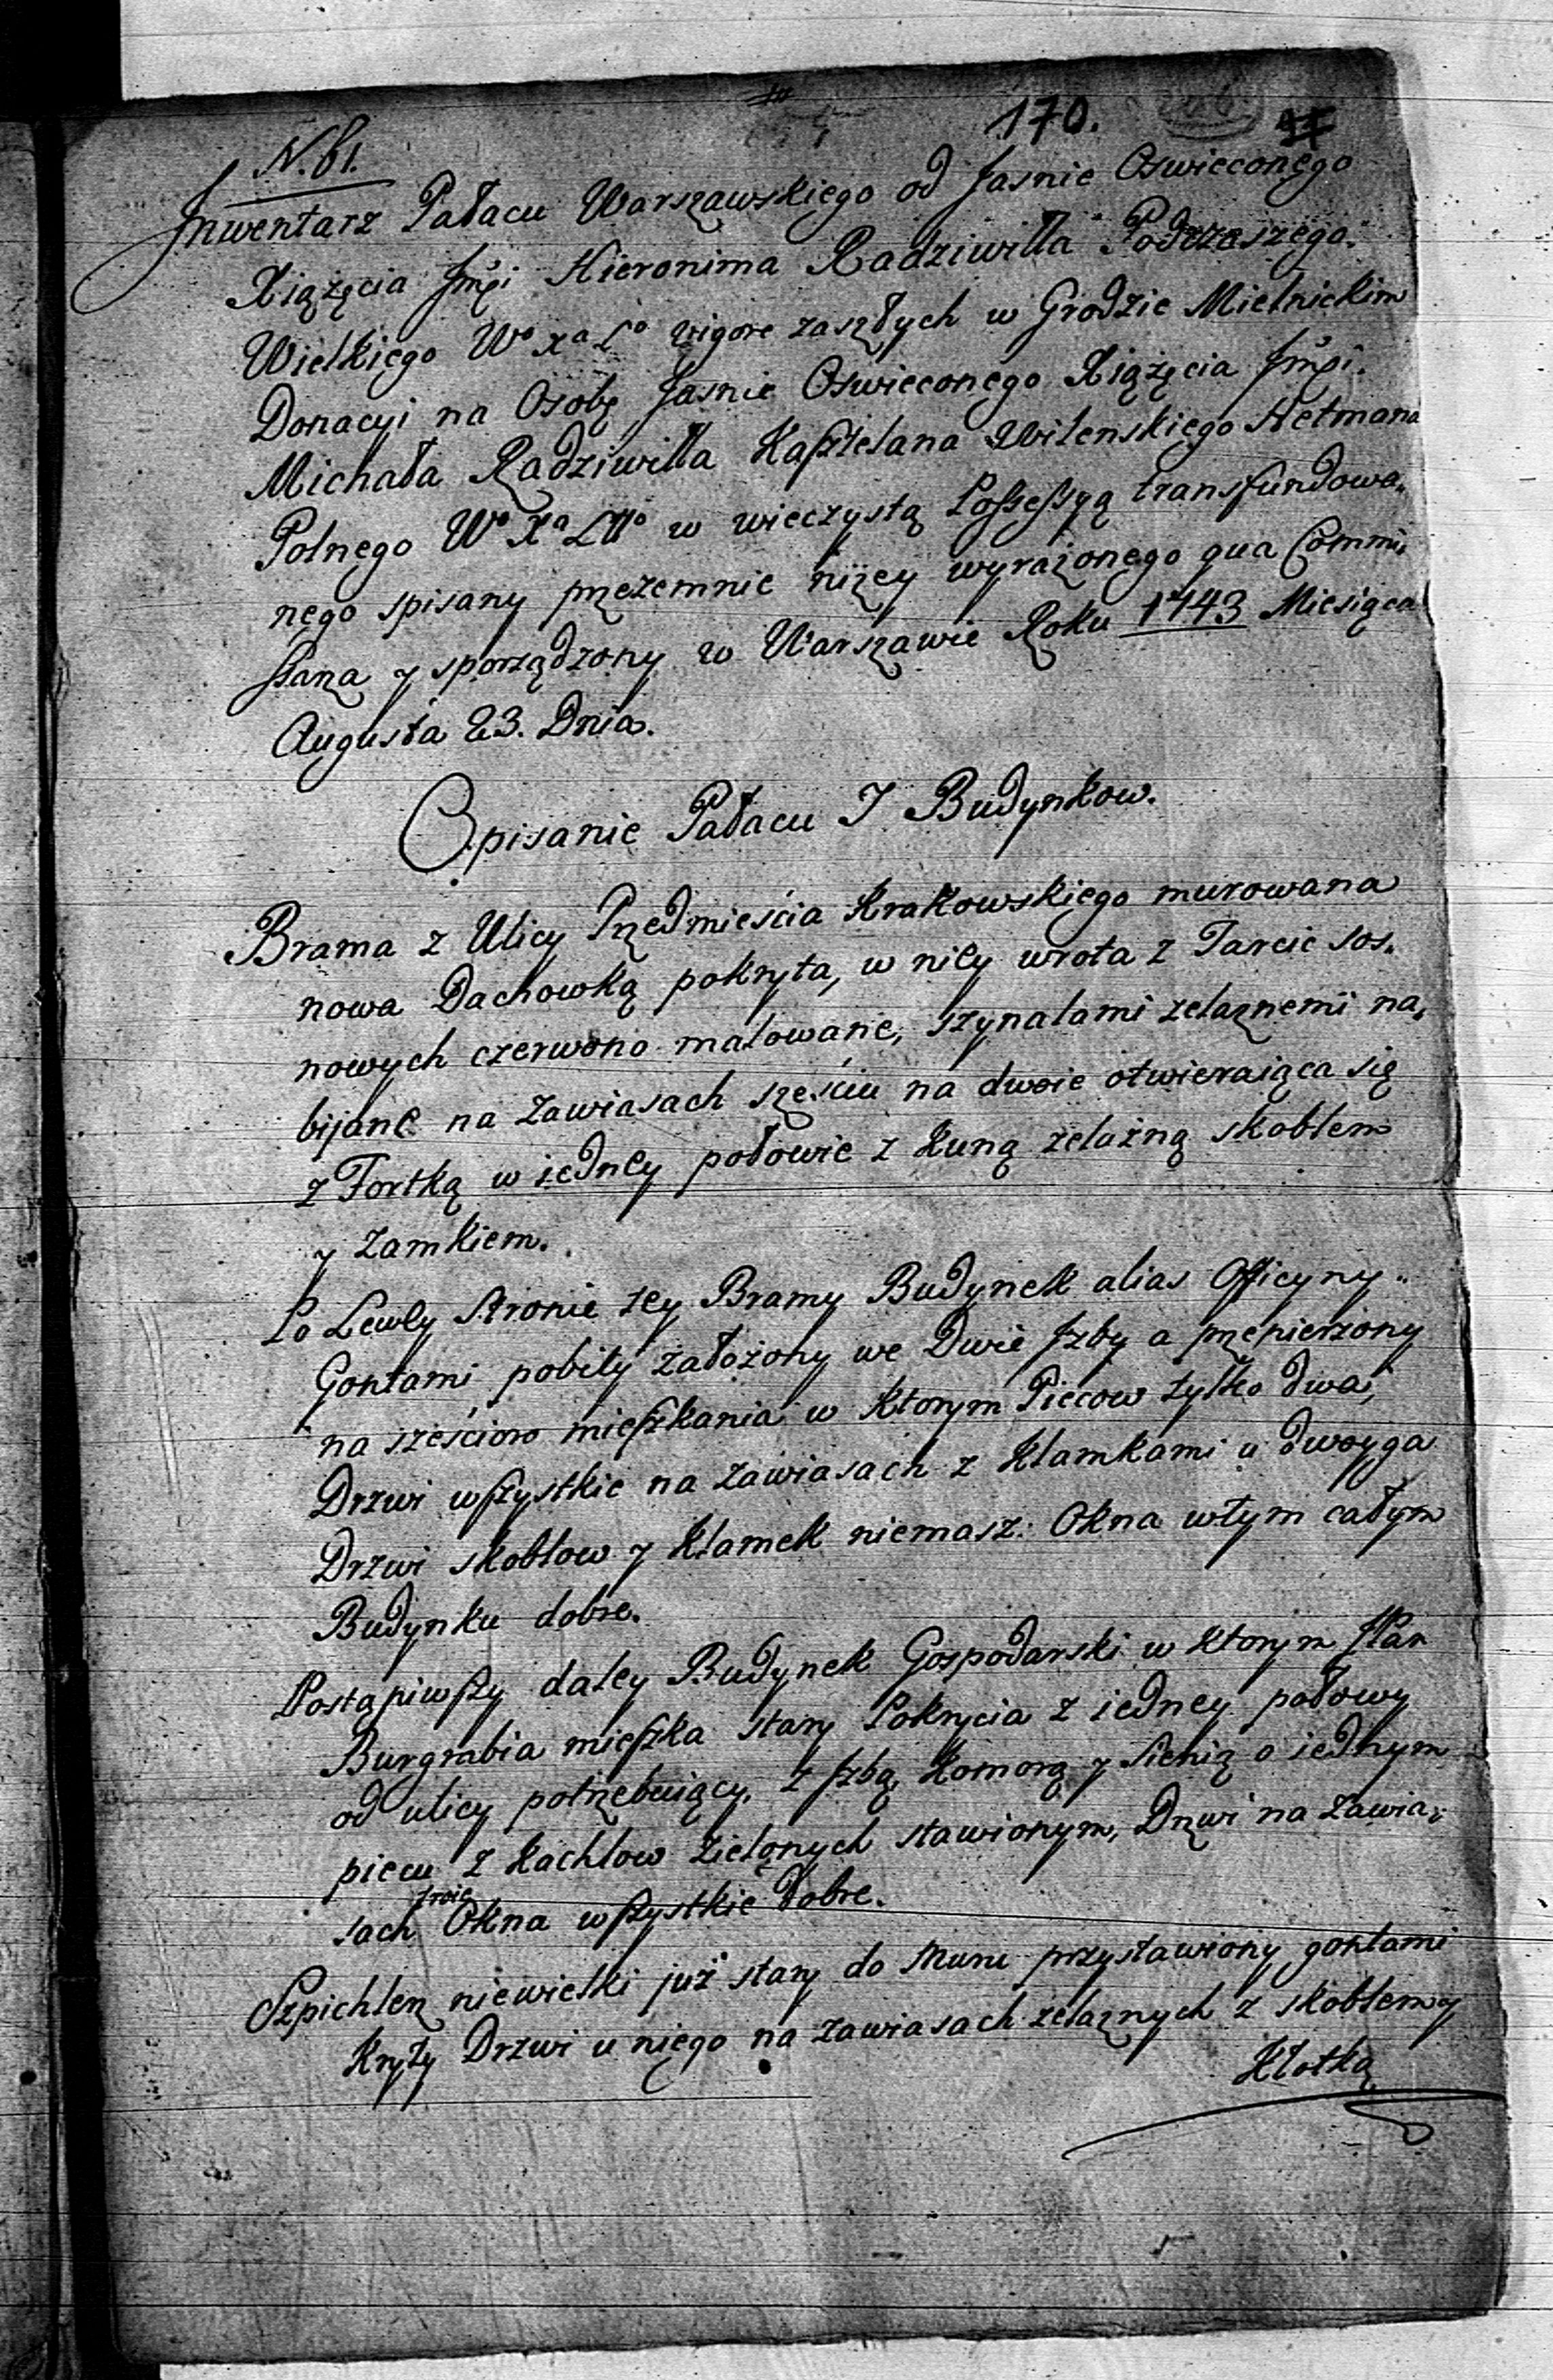 170.
N. 61.
Jnwentarz Pałacu Warszawskiego od Jasnie Oswieconego
Xiążęcia Jmći Hieronima Radziwiłła Podczaszego
Wielkiego Wo Xa Lo vigore zaszłych w Grodzie Mielnickim
Donacyi na Osobę Jasnie Oswieconego Xiążęcia Jmći.
Michała Radziwiłła Kasztelana Wilenskiego Hetmana
Polnego Wo Xa Litto w wieczystą Possessyą transfundowa,
nego spisany przezemnie niżey wyrażonego qua Commi,
ssarza y sporządzony w Warszawie Roku 1743 Miesiąca
Augusta 23. Dnia.
Opisanie Pałacu J Budynkow.
Brama z Ulicy Przedmieścia Krakowskiego murowana
nowa Dachowką pokryta, w niey wrota z Tarcic sos,
nowych czerwono malowane, szynalami żelaznemi na,
bijane na Zawiasach sześciu na dwoie otwieraiąca się
z Fortką w iedney połowie z Kuną żelazną skoblem
y Zamkiem.
Po Lewey Stronie tey Bramy Budynek alias Officyny
Gontami pobity założony we Dwie Jzby a przepierzony
na sześcioro mieszkania w Ktorym Piecow tylko dwa,
Drzwi wszystkie na Zawiasach z Klamkami u dwoyga
Drzwi skoblow y Klamek niemasz: Okna wtym całym
Budynku dobre.
Postąpiwszy daley Budynek Gospodarski w Ktorym JPan
Burgrabia mieszka stary Pokrycia z iedney połowy
od ulicy potrzebuiący, z Jzbą, Komorą y Sienią o iednym
piecu z Kachlow Zielonych stawionym, Drzwi na Zawia,
sach troie Okna wszystkie dobre.
Szpichlerz niewielki już stary do Muru przystawiony gontami
Kryty Drzwi u niego na Zawiasach żelaznych z skoblem y
Kłotką